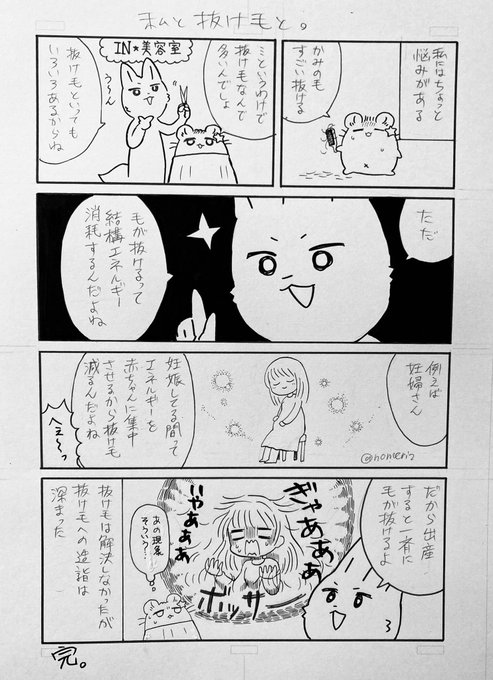 私と抜け毛と。
私にはちょっと
悩みがある
かみのも
すごい抜ける
IN★美容室
ミというわけで
抜け毛なんで
多いんでしょ
う〜ん
抜け毛といっても
いろいろあるからね
ただ
毛が抜けるって
結構エネルギー
消耗するんだよね
例えば
妊婦さん
妊娠してる間って
エネルギーを
赤ちゃんに集中
させるから抜け毛
減るんだよね
へぇ〜っ
@nomeri2
だから出産
すると一斉に
毛が抜けるよ
ぎゃああああ
いやああああ
ボッサ
あの現象
そういう…
抜け毛は解決しなかったが
抜け毛への造詣は
深まった
完。